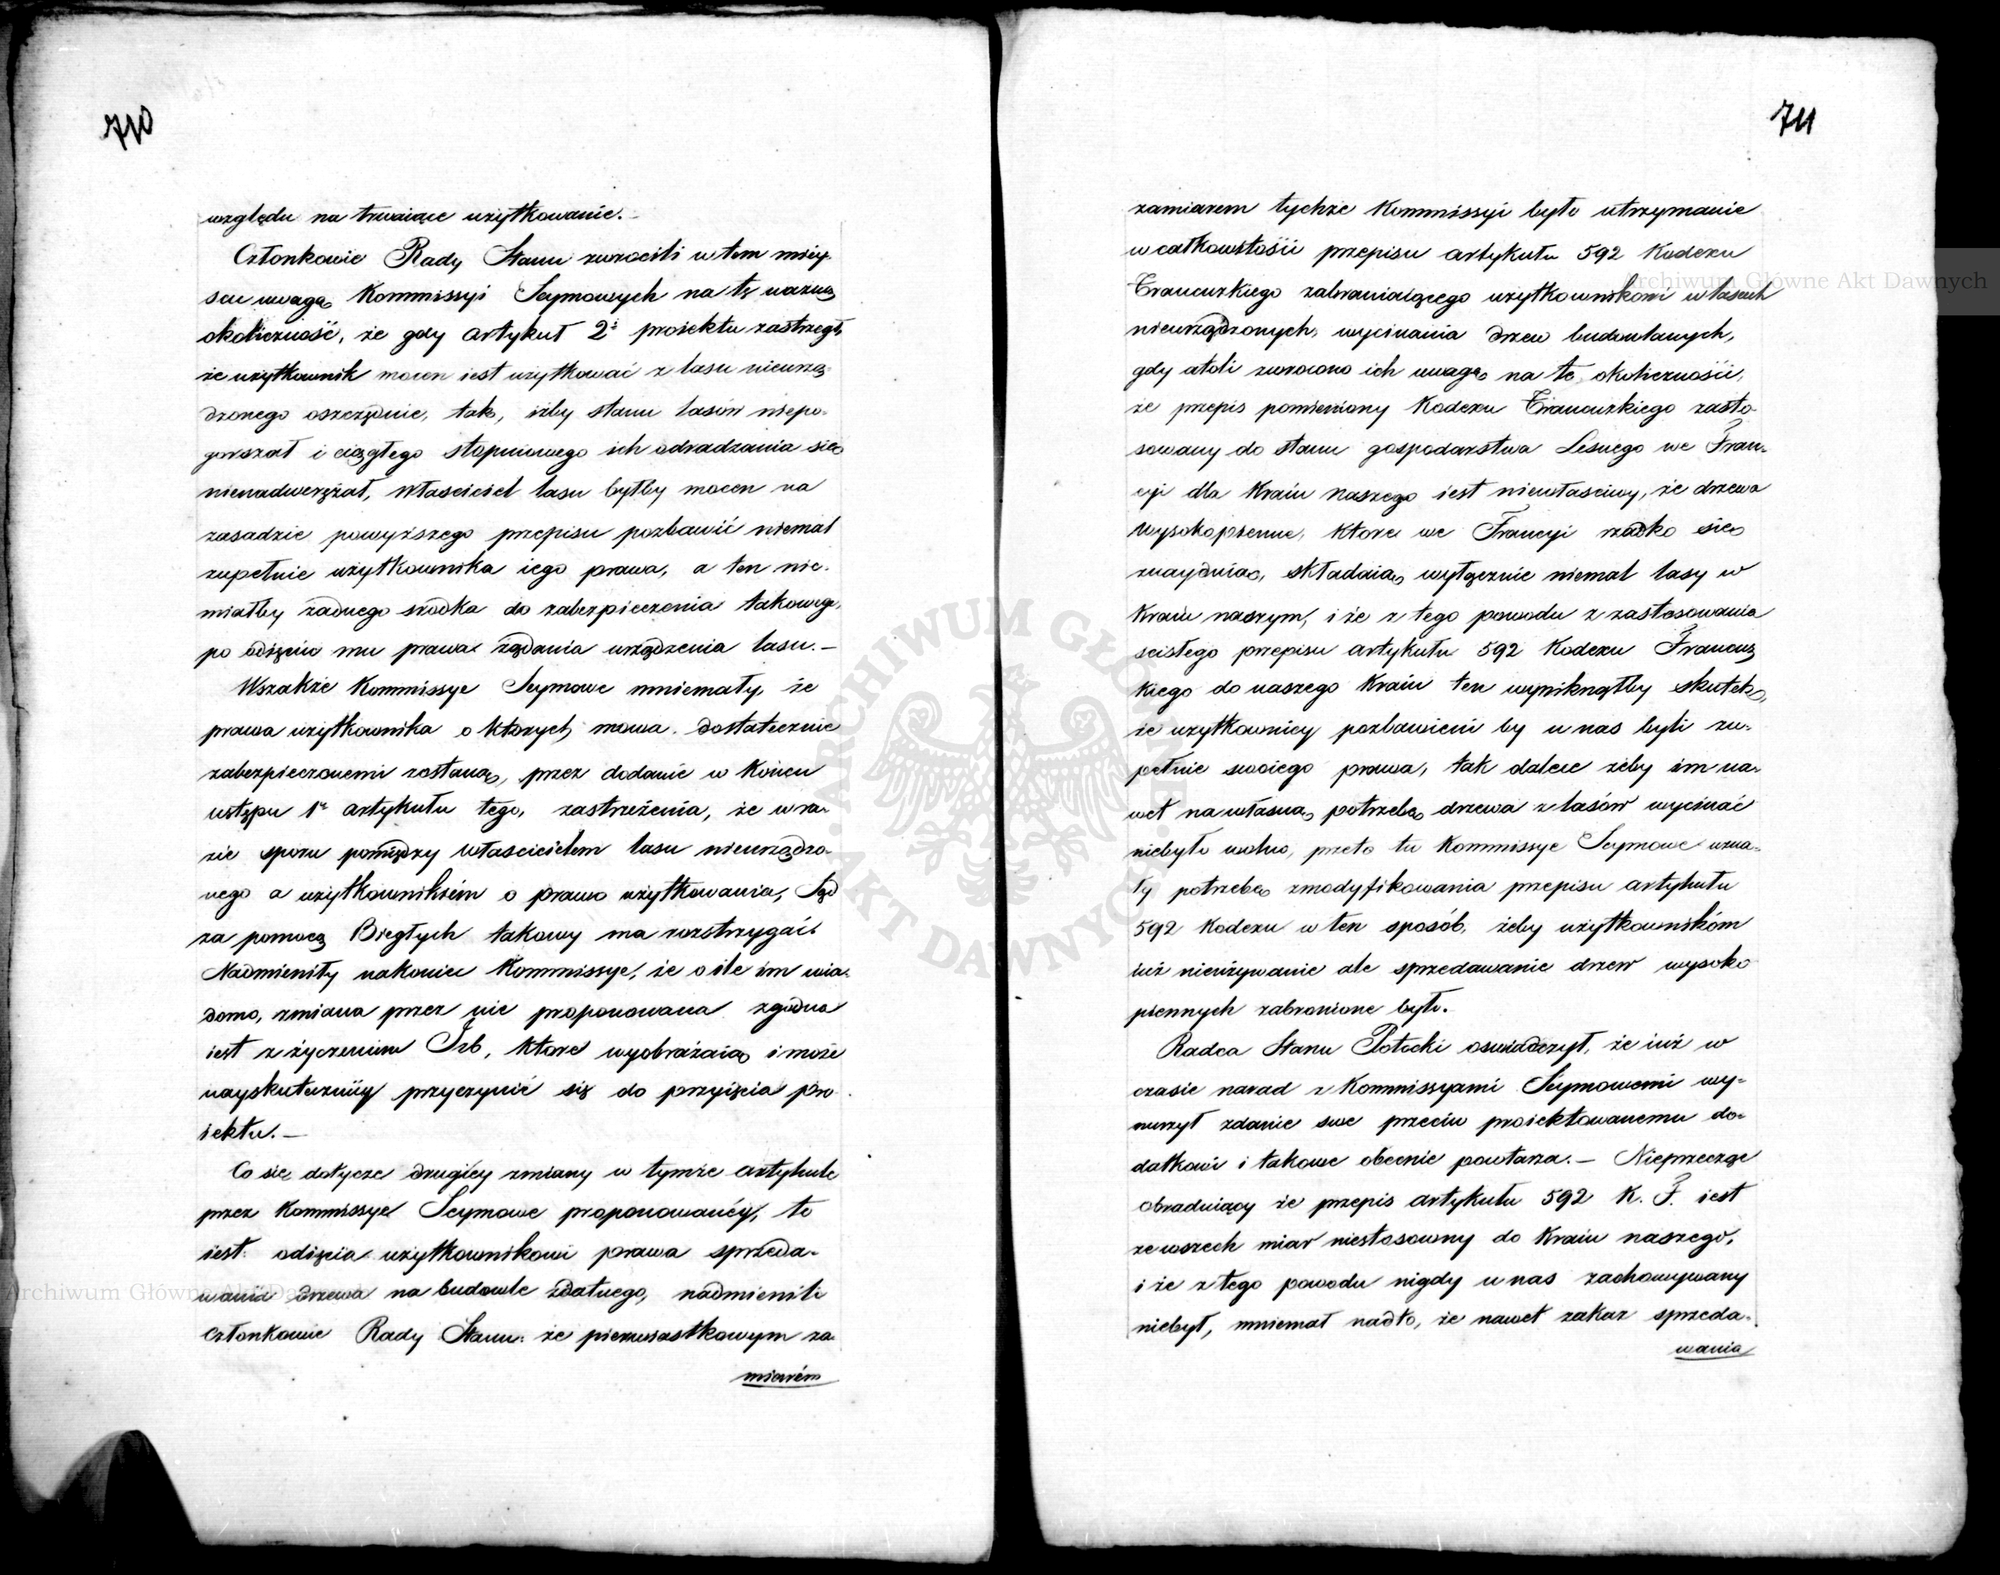 710
względu na trwaiące użytkowanie.
Członkowie Rady Stanu zwrócili w tem miey-
scu uwagę Kommissyi Seymowych na tę ważną
okoliczność, że gdy artykuł 2i proiektu zastrzegł,
że użytkownik mocen iest użytkować z lasu nieurzą-
dzonego oszczędnie, tak, iżby stanu lasów niepo-
gorszał i ciągłego stopniowego ich odradzania się
nienadwerężał, Właściciel lasu byłby mocen na
zasadzie powyższego przepisu pozbawić niemal
zupełnie użytkownika iego prawa, a ten nie-
miałby żadnego środka do zabezpieczenia takowego,
po odięciu mu prawa żądania urządzenia lasu.—
Wszakże Kommissye Seymowe mniemały, że
prawa użytkownika o których mowa dostatecznie
zabezpieczonemi zostaną, przez dodanie w końcu
ustępu 1o artykułu tego, zastrzeżenia, że w ra-
zie sporu pomiędzy Właścicielem lasu nieurządzo-
nego a użytkownikiem o prawo użytkowania, Sąd
za pomocą Biegłych takowy ma rozstrzygać.
Nadmieniły nakoniec Kommissye, że o ile im wia-
domo, zmiana przez nie proponowana zgodna
iest z życzeniem Izb, które wyobrażaią i może
nayskuteczniey przyczynić się do przyięcia pro-
iektu.—
Co się dotycze drugiey zmiany w tymże artykule
przez Kommissye Seymowe proponowaney, to
iest: odięcia użytkownikowi prawa sprzeda-
wania drzewa na budowle zdatnego, nadmienili
Członkowie Rady Stanu: że pierwiastkowym za-
miarem
711
zamiarem tychże Kommissyi było utrzymanie
w całkowitości przepisu artykułu 592 Kodexu
Francuzkiego zabraniaiącego użytkownikowi w lasach
nieurządzonych, wycinania drzew budowlanych,
gdy atoli zwrócono ich uwagę na te okoliczności,
że przepis pomieniony Kodexu Francuzkiego zasto-
sowany do stanu gospodarstwa Lesnego we Fran-
cyi dla Kraiu naszego iest niewłaściwy, że drzewa
wysokopienne, które we Francyi rzadko się
znayduią, składaią wyłącznie niemal lasy w
Kraiu naszym, i że z tego powodu z zastosowania
scisłego przepisu artykułu 592 Kodexu Francuz
kiego do naszego Kraiu ten wyniknąłby skutek,
że użytkownicy pozbawieni by u nas byli zu-
pełnie swoiego prawa, tak dalece żeby im na-
wet na własną potrzebę drzewa z lasów wycinać
niebyło wolno, przeto te Kommissye Seymowe uzna-
ły potrzebę zmodyfikowania przepisu artykułu
592 Kodexu w ten sposób, żeby użytkownikom
iuż nieużywanie ale sprzedawanie drzew wysoko
piennych zabronione było.
Radca Stanu Potocki oswiadczył, że iuż w
czasie narad z Kommissyami Seymowemi wy-
nurzył zdanie swe przeciw proiektowanemu do-
datkowi i takowe obecnie powtarza.— Nieprzeczą
obraduiący że przepis artykułu 592 K. F. iest
ze wszech miar niestosowny do Kraiu naszego,
i że z tego powodu nigdy u nas zachowywany
niebył, mniemał nadto, że nawet zakaz sprzeda-
wania
Archiwum Główne Akt Dawnych
Archiwum Główne Akt Dawnych